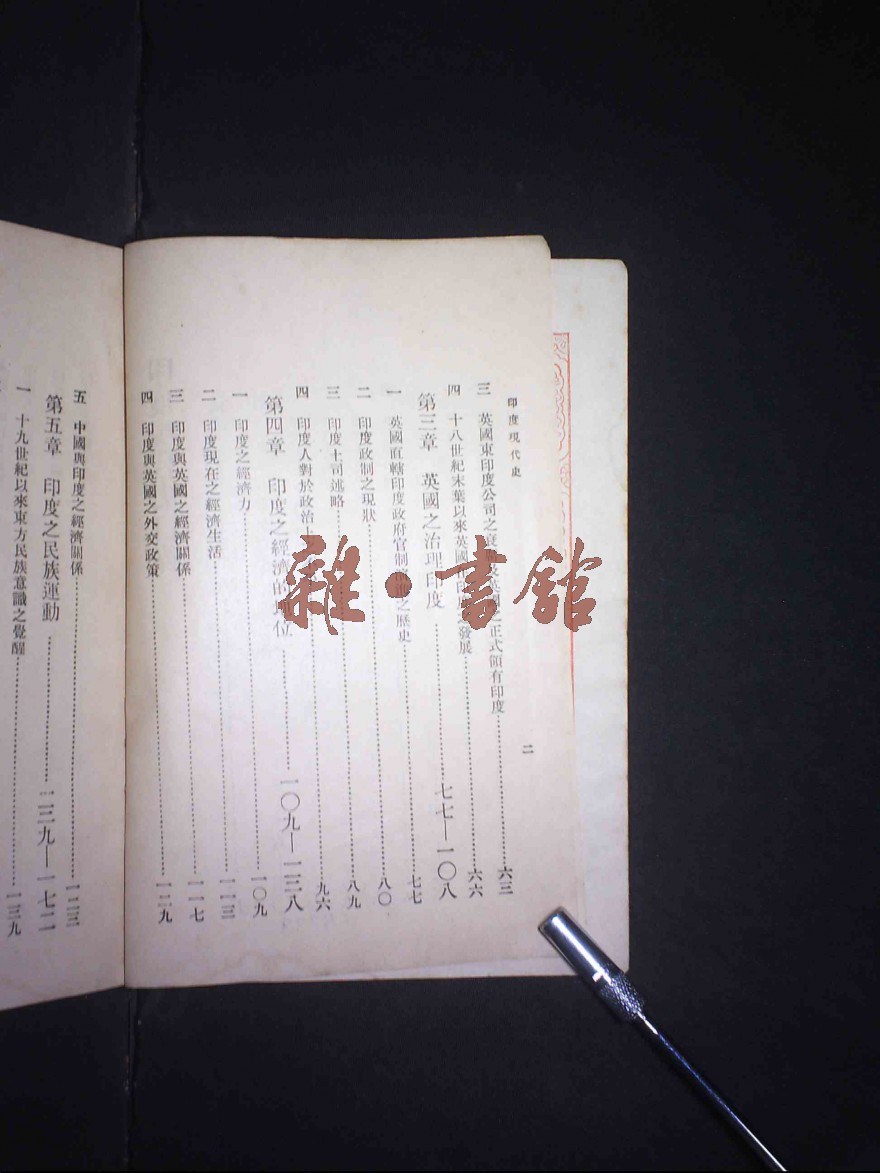 印度現代史
二
三 英國東印度公司之 正式領有印度……六三
四 十八世紀末葉以來英國 發展……六六
第三章 英國之治理印度……七七—一〇八
一 英國直轄印度政府官制 之歷史……七七
二 印度政制之現狀……八〇
三 印度土司述略……八九
四 印度人對於政治上……九六
第四章 印度之經濟的地位……一〇九—一三八
一 印度之經濟力……一〇九
二 印度現在之經濟生活……一一三
三 印度與英國之經濟關係……一一七
四 印度與英國之外交政策……一二九
五 中國與印度之經濟關係……一三三
第五章 印度之民族運動……一三九—一七二
一 十九世紀以來東方民族意識之覺醒……一三九
雜·書館